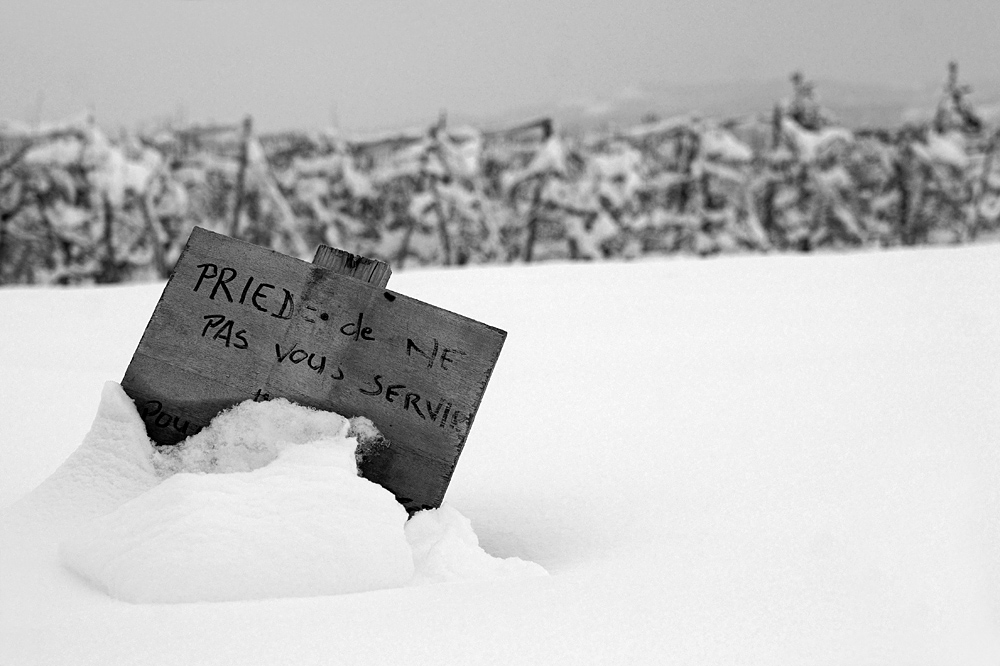 PRIERE de NE
PAS VOUS SERVIR
POU